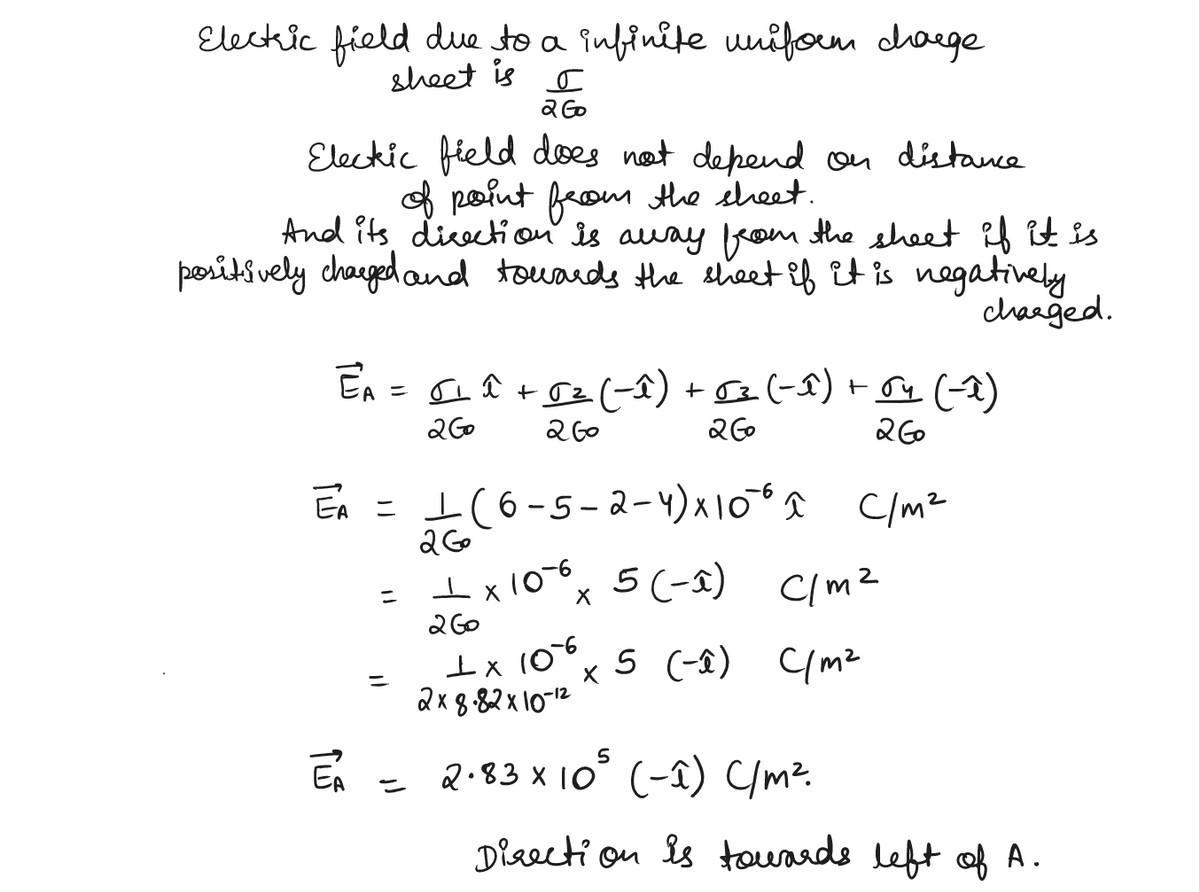 Electric field due to a infinite uniform charge
sheet is σ/2ϵ0
Electric field does not depend on distance
of point from the sheet.
And its direction is away from the sheet if it is
positively charged and towards the sheet if it is negatively
charged.
E⃗A = σ1/2ϵ0 î + σ2/2ϵ0 (-î) + σ3/2ϵ0 (-î) + σ4/2ϵ0 (-î)
E⃗A = 1/2ϵ0 (6-5-2-4)×10⁻⁶ î C/m²
= 1/2ϵ0 × 10⁻⁶ × 5 (-î) C/m²
= 1/2×8.82×10⁻¹² × 10⁻⁶ × 5 (-î) C/m²
E⃗A = 2.83 × 10⁵ (-î) C/m².
Direction is towards left of A.